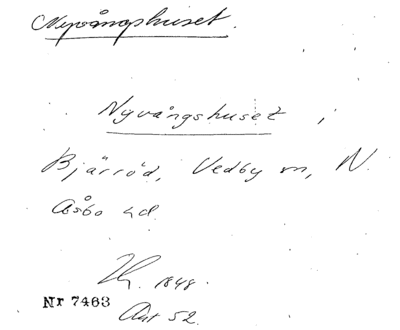 Nyvångshuset.
Nyvångshuset i
Bjärröd, Vedby sn, N.
Åsbo hd
Hfl. 1848.
Nr 7463
Akt 52.